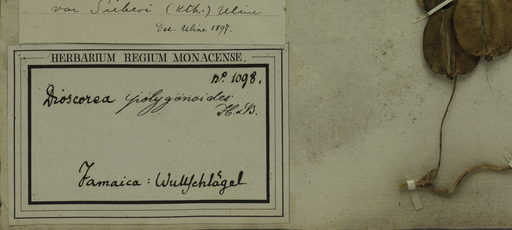 var Sieberi (Kth.) Uline
Det. Uline 1897.
HERBARIUM REGIUM MONACENSE.
No. 1098.
Dioscorea polygonoides
H&B.
Jamaica: Wullschlägel